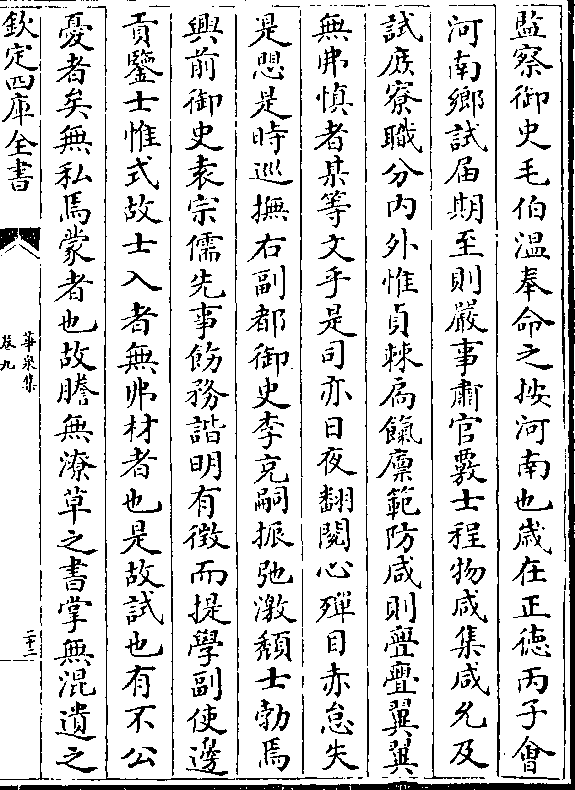 監察御史毛伯溫奉命之按河南也歲在正德丙子會
河南鄉試屆期至則嚴事肅官覈士程物咸集咸允及
試庶寮職分內外惟貞棘扃餼廩範防咸則亹亹翼翼
無弗慎者某等文乎是司亦日夜翻閱心殫目赤怠失
是愳是時巡撫右副都御史李克嗣振弛激頹士勃焉
興前御史袁宗儒先事飭務諧明有徴而提學副使邊
貢鑒士惟式故士入者無弗材者也是故試也有不公
憂者矣無私焉蒙者也故謄無潦草之書掌無混遺之
欽定四庫全書
華泉集
卷九
二十二